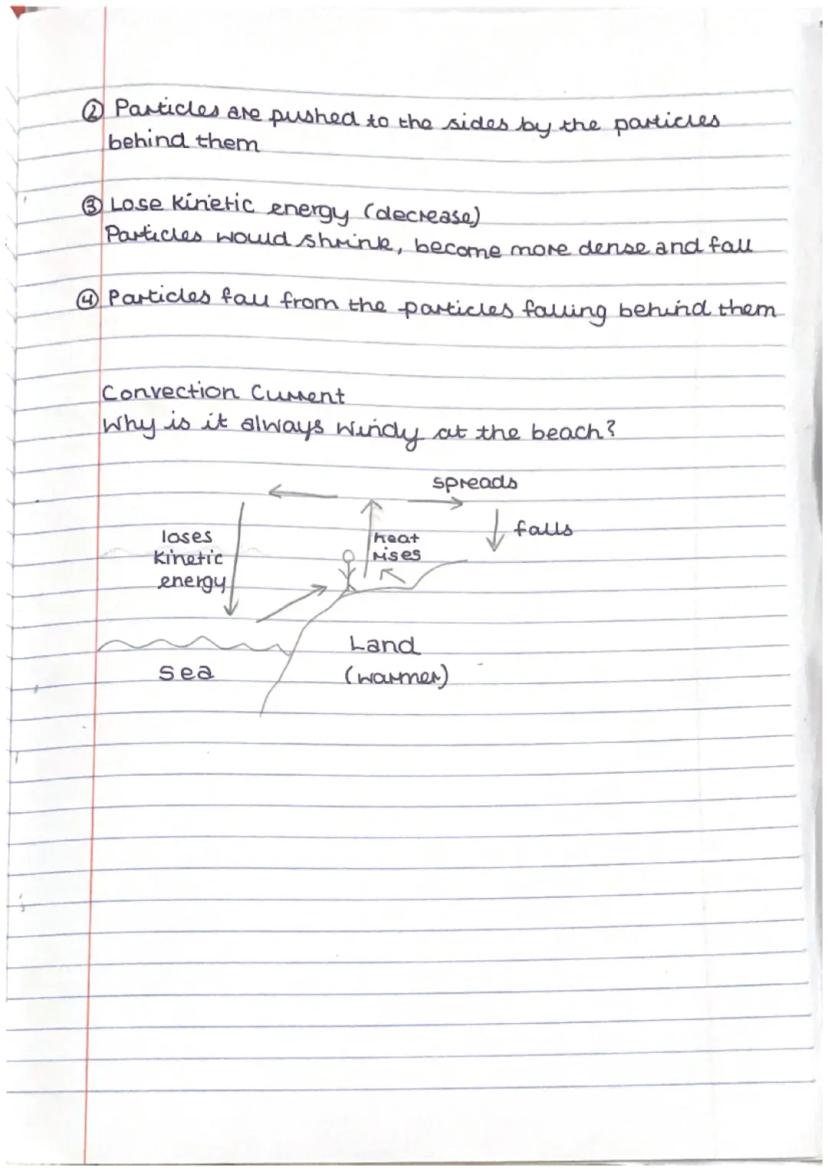 ② Particles are pushed to the sides by the particles
behind them
③ Lose kinetic energy (decrease)
Particles would shrink, become more dense and fall
④ Particles fall from the particles falling behind them
Convection Current
Why is it always windy at the beach?
spreads
falls
loses
kinetic
energy
heat
rises
Land
(warmer)
sea